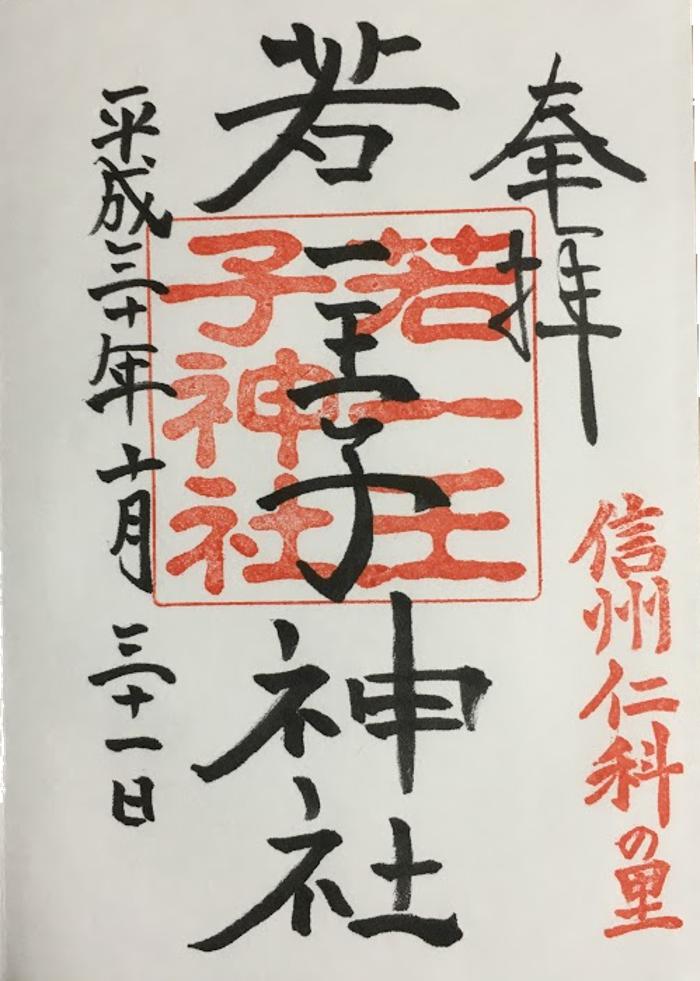 奉拝
信州仁科の里
若一王子神社
若一王
子神社
平成三十年十月三十一日